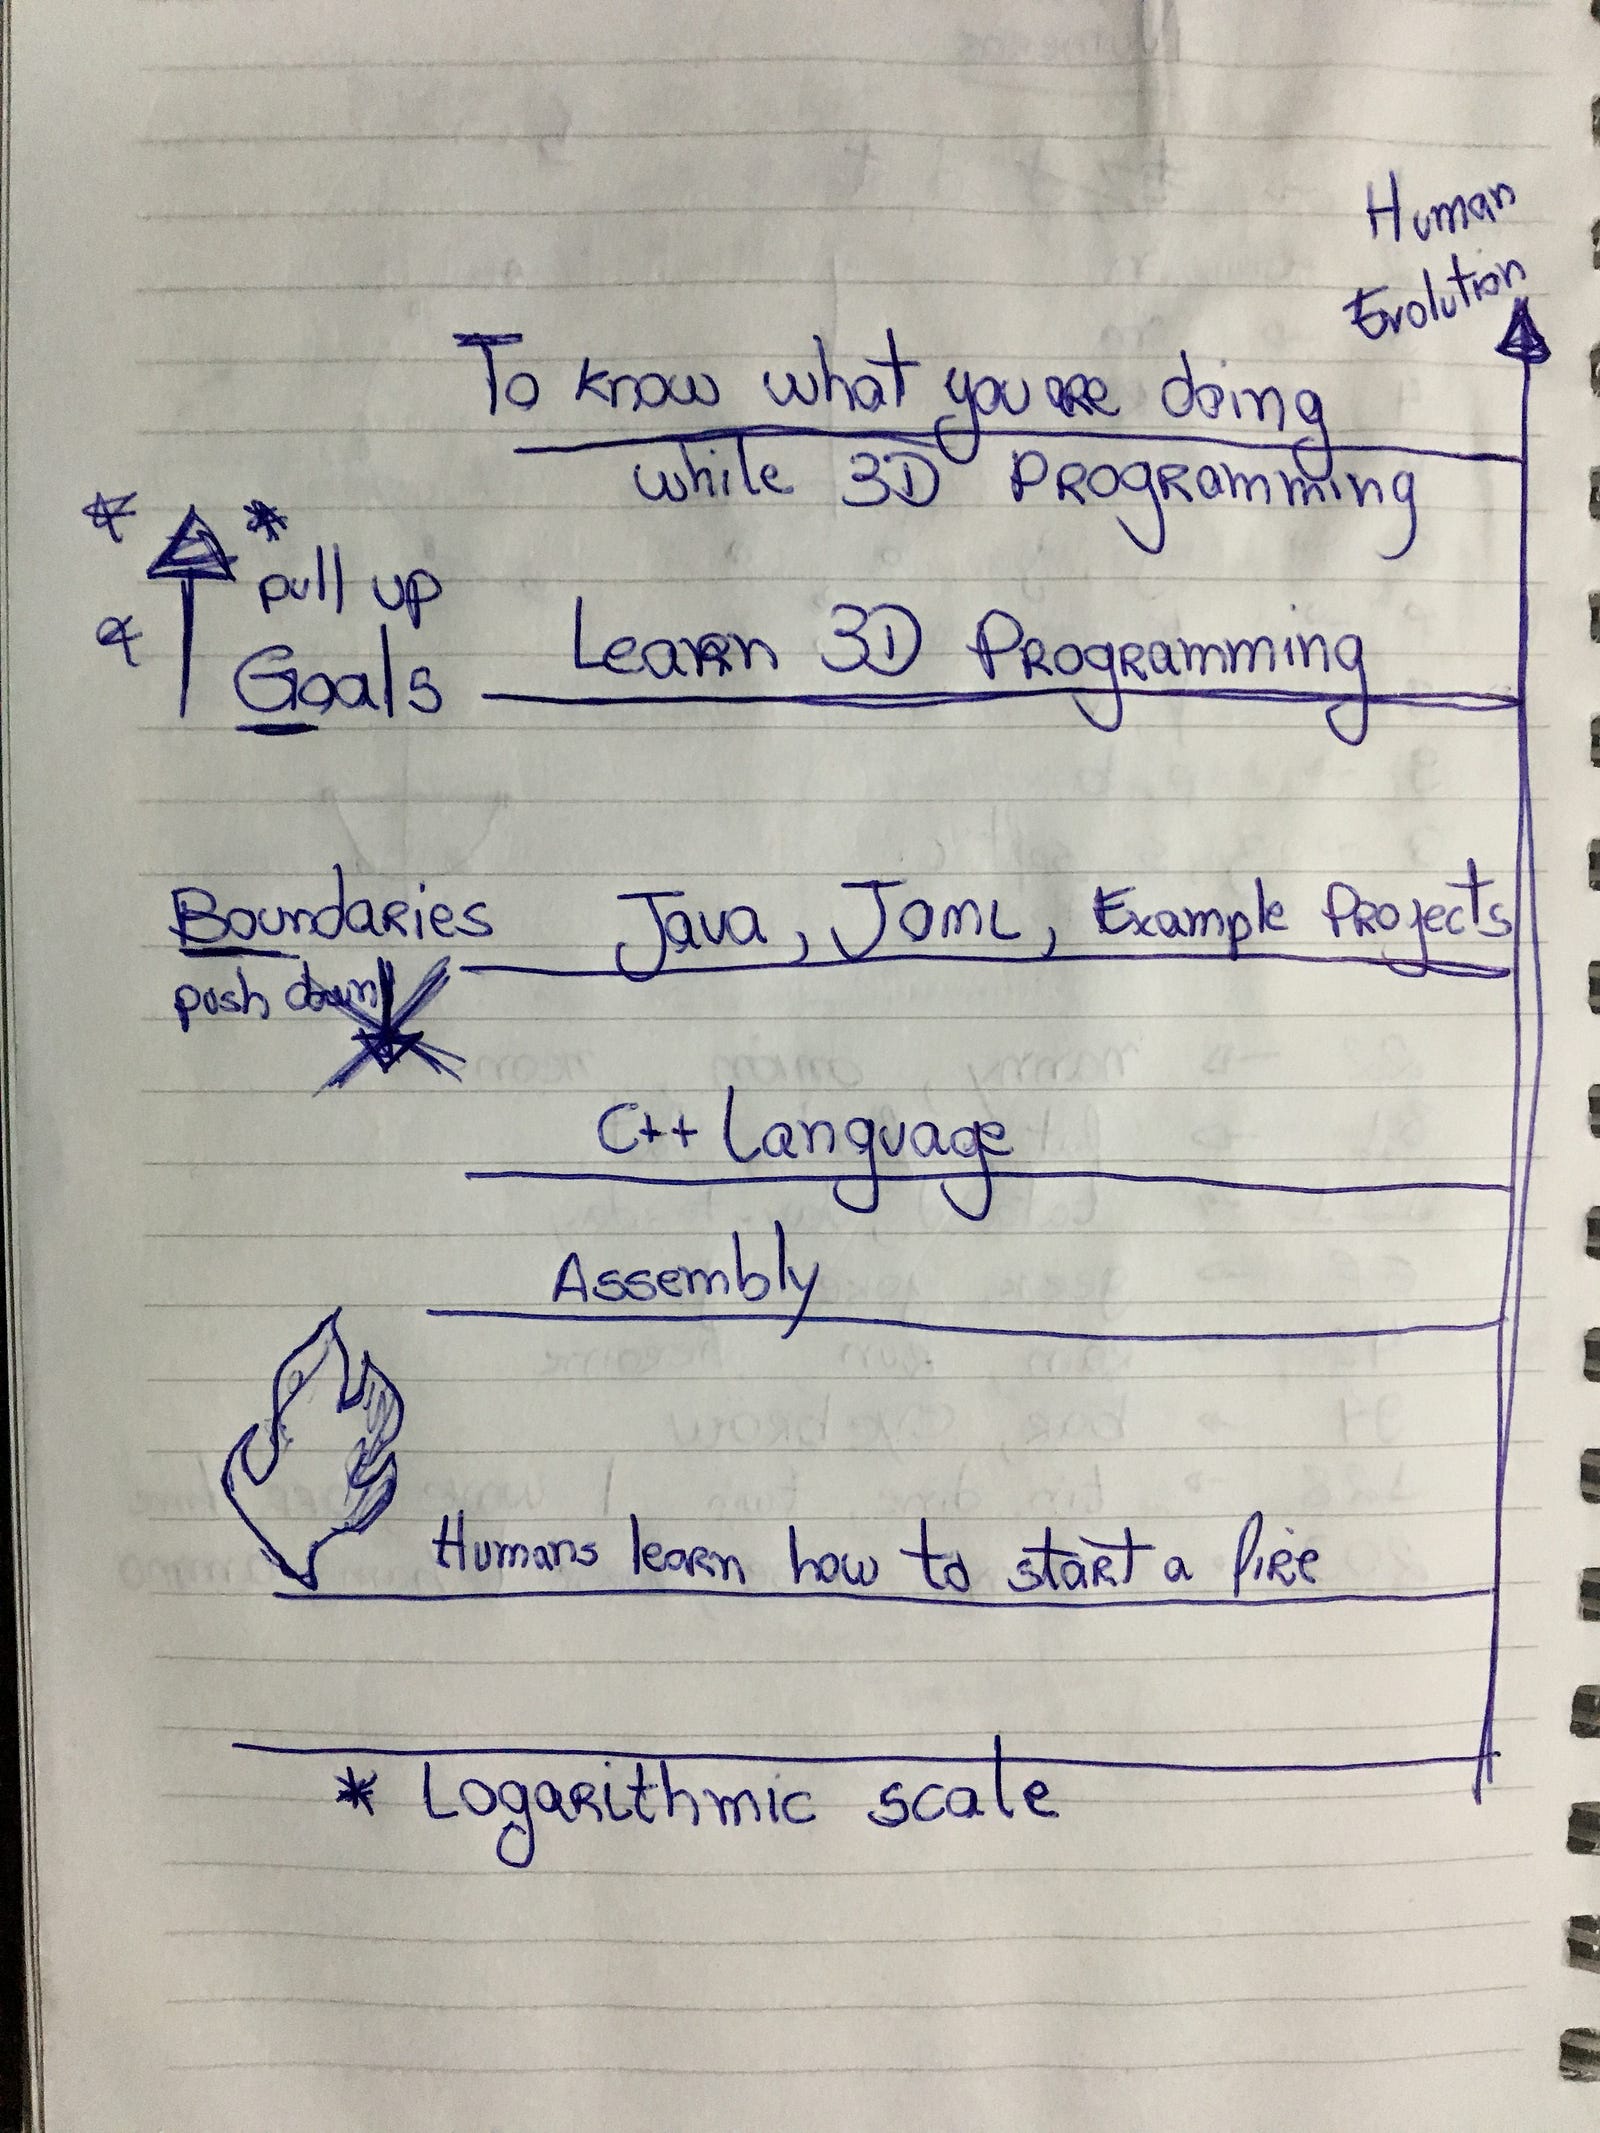 Human
Evolution
To know what you are doing
while 3D Programming
pull up
Goals
Learn 3D Programming
Boundaries
Java, JOML, Example Projects
push down
C++ Language
Assembly
Humans learn how to start a fire
* Logarithmic scale